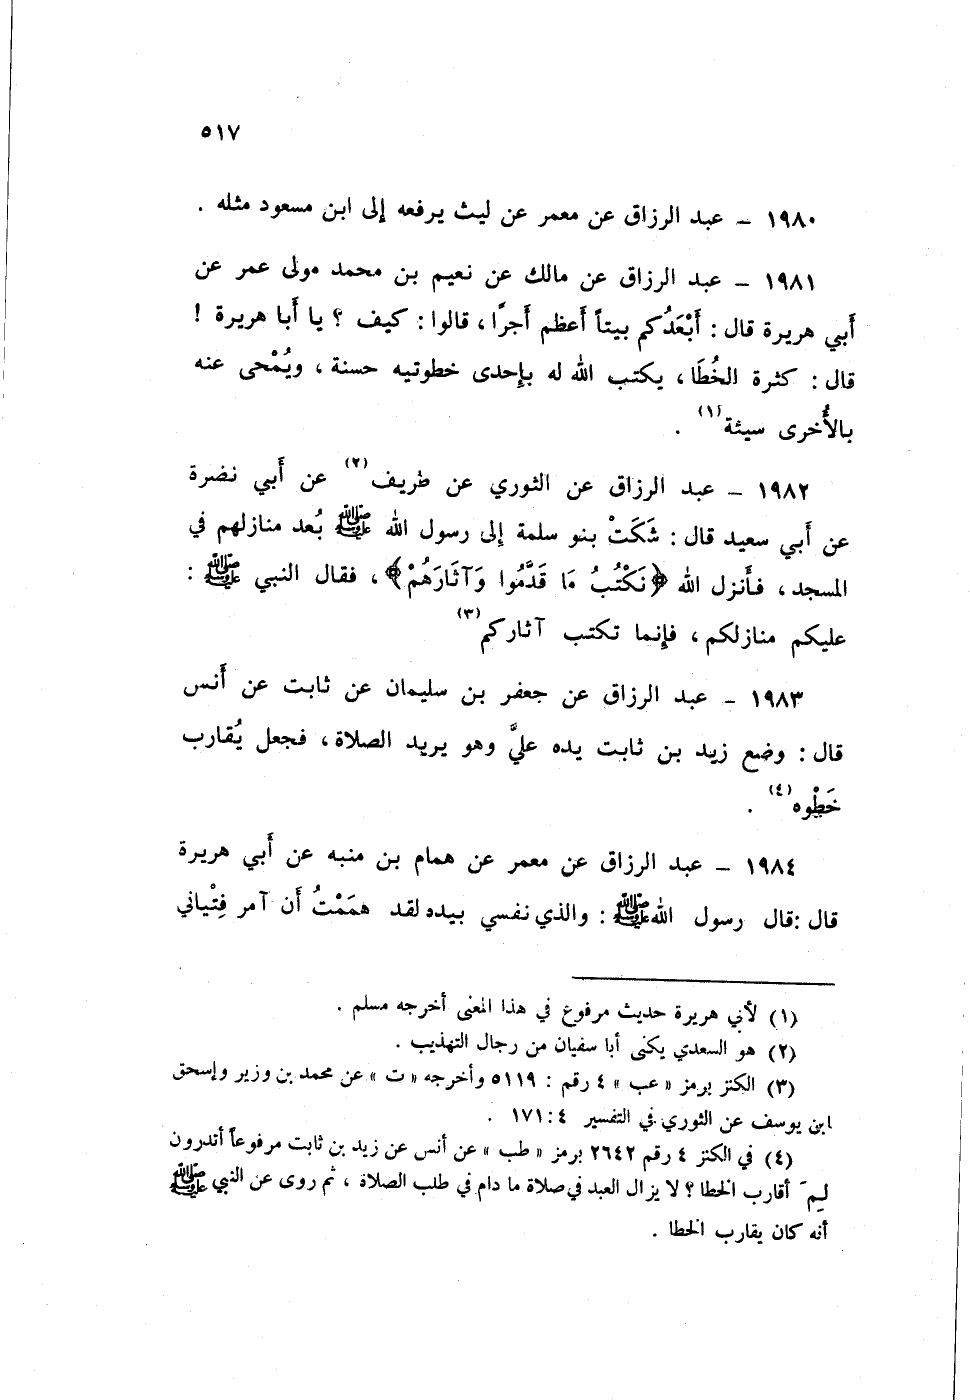 ٥١٧
١٩٨٠ – عبد الرزاق عن معمر عن ليث يرفعه إلى ابن مسعود مثله .
١٩٨١ – عبد الرزاق عن مالك عن نعيم بن محمد مولى عمر عن
أَبي هريرة قال : أَبْعَدُكم بيتاً أَعظم أَجرًا ، قالوا : كيف ؟ يا أَبا هريرة !
قال : كثرة الخُطَا ، يكتب الله له بإحدى خطوتيه حسنة ، ويُمْحى عنه
بالأُخرى سيئة (١) .
١٩٨٢ – عبد الرزاق عن الثوري عن طريف (٢) عن أَبي نضرة
عن أَبي سعيد قال : شَكَتْ بنو سلمة إلى رسول الله ﷺ بُعد منازلهم في
المسجد ، فأَنزل الله ﴿نَكْتُبُ مَا قَدَّمُوا وَآثَارَهُمْ﴾ ، فقال النبي ﷺ :
عليكم منازلكم ، فإِنما تكتب آثاركم (٣)
١٩٨٣ – عبد الرزاق عن جعفر بن سليمان عن ثابت عن أَنس
قال : وضع زيد بن ثابت يده عليَّ وهو يريد الصلاة ، فجعل يُقارب
خَطْوه (٤) .
١٩٨٤ – عبد الرزاق عن معمر عن همام بن منبه عن أَبي هريرة
قال :قال رسول الله ﷺ : والذي نفسي بيده لقد هممْتُ أَن آمر فِتْياني
(١) لأبي هريرة حديث مرفوع في هذا المعنى أخرجه مسلم .
(٢) هو السعدي يكنى أبا سفيان من رجال التهذيب .
(٣) الكنز برمز « عب » ٤ رقم : ٥١١٩ وأخرجه « ت » عن محمد بن وزير وإسحق
ابن يوسف عن الثوري في التفسير ٤ : ١٧١ .
(٤) في الكنز ٤ رقم ٢٦٤٢ برمز « طب » عن أنس عن زيد بن ثابت مرفوعاً أتدرون
لِمَ أقارب الخطا ؟ لا يزال العبد في صلاة ما دام في طلب الصلاة ، ثم روى عن النبي ﷺ
أنه كان يقارب الخطا .